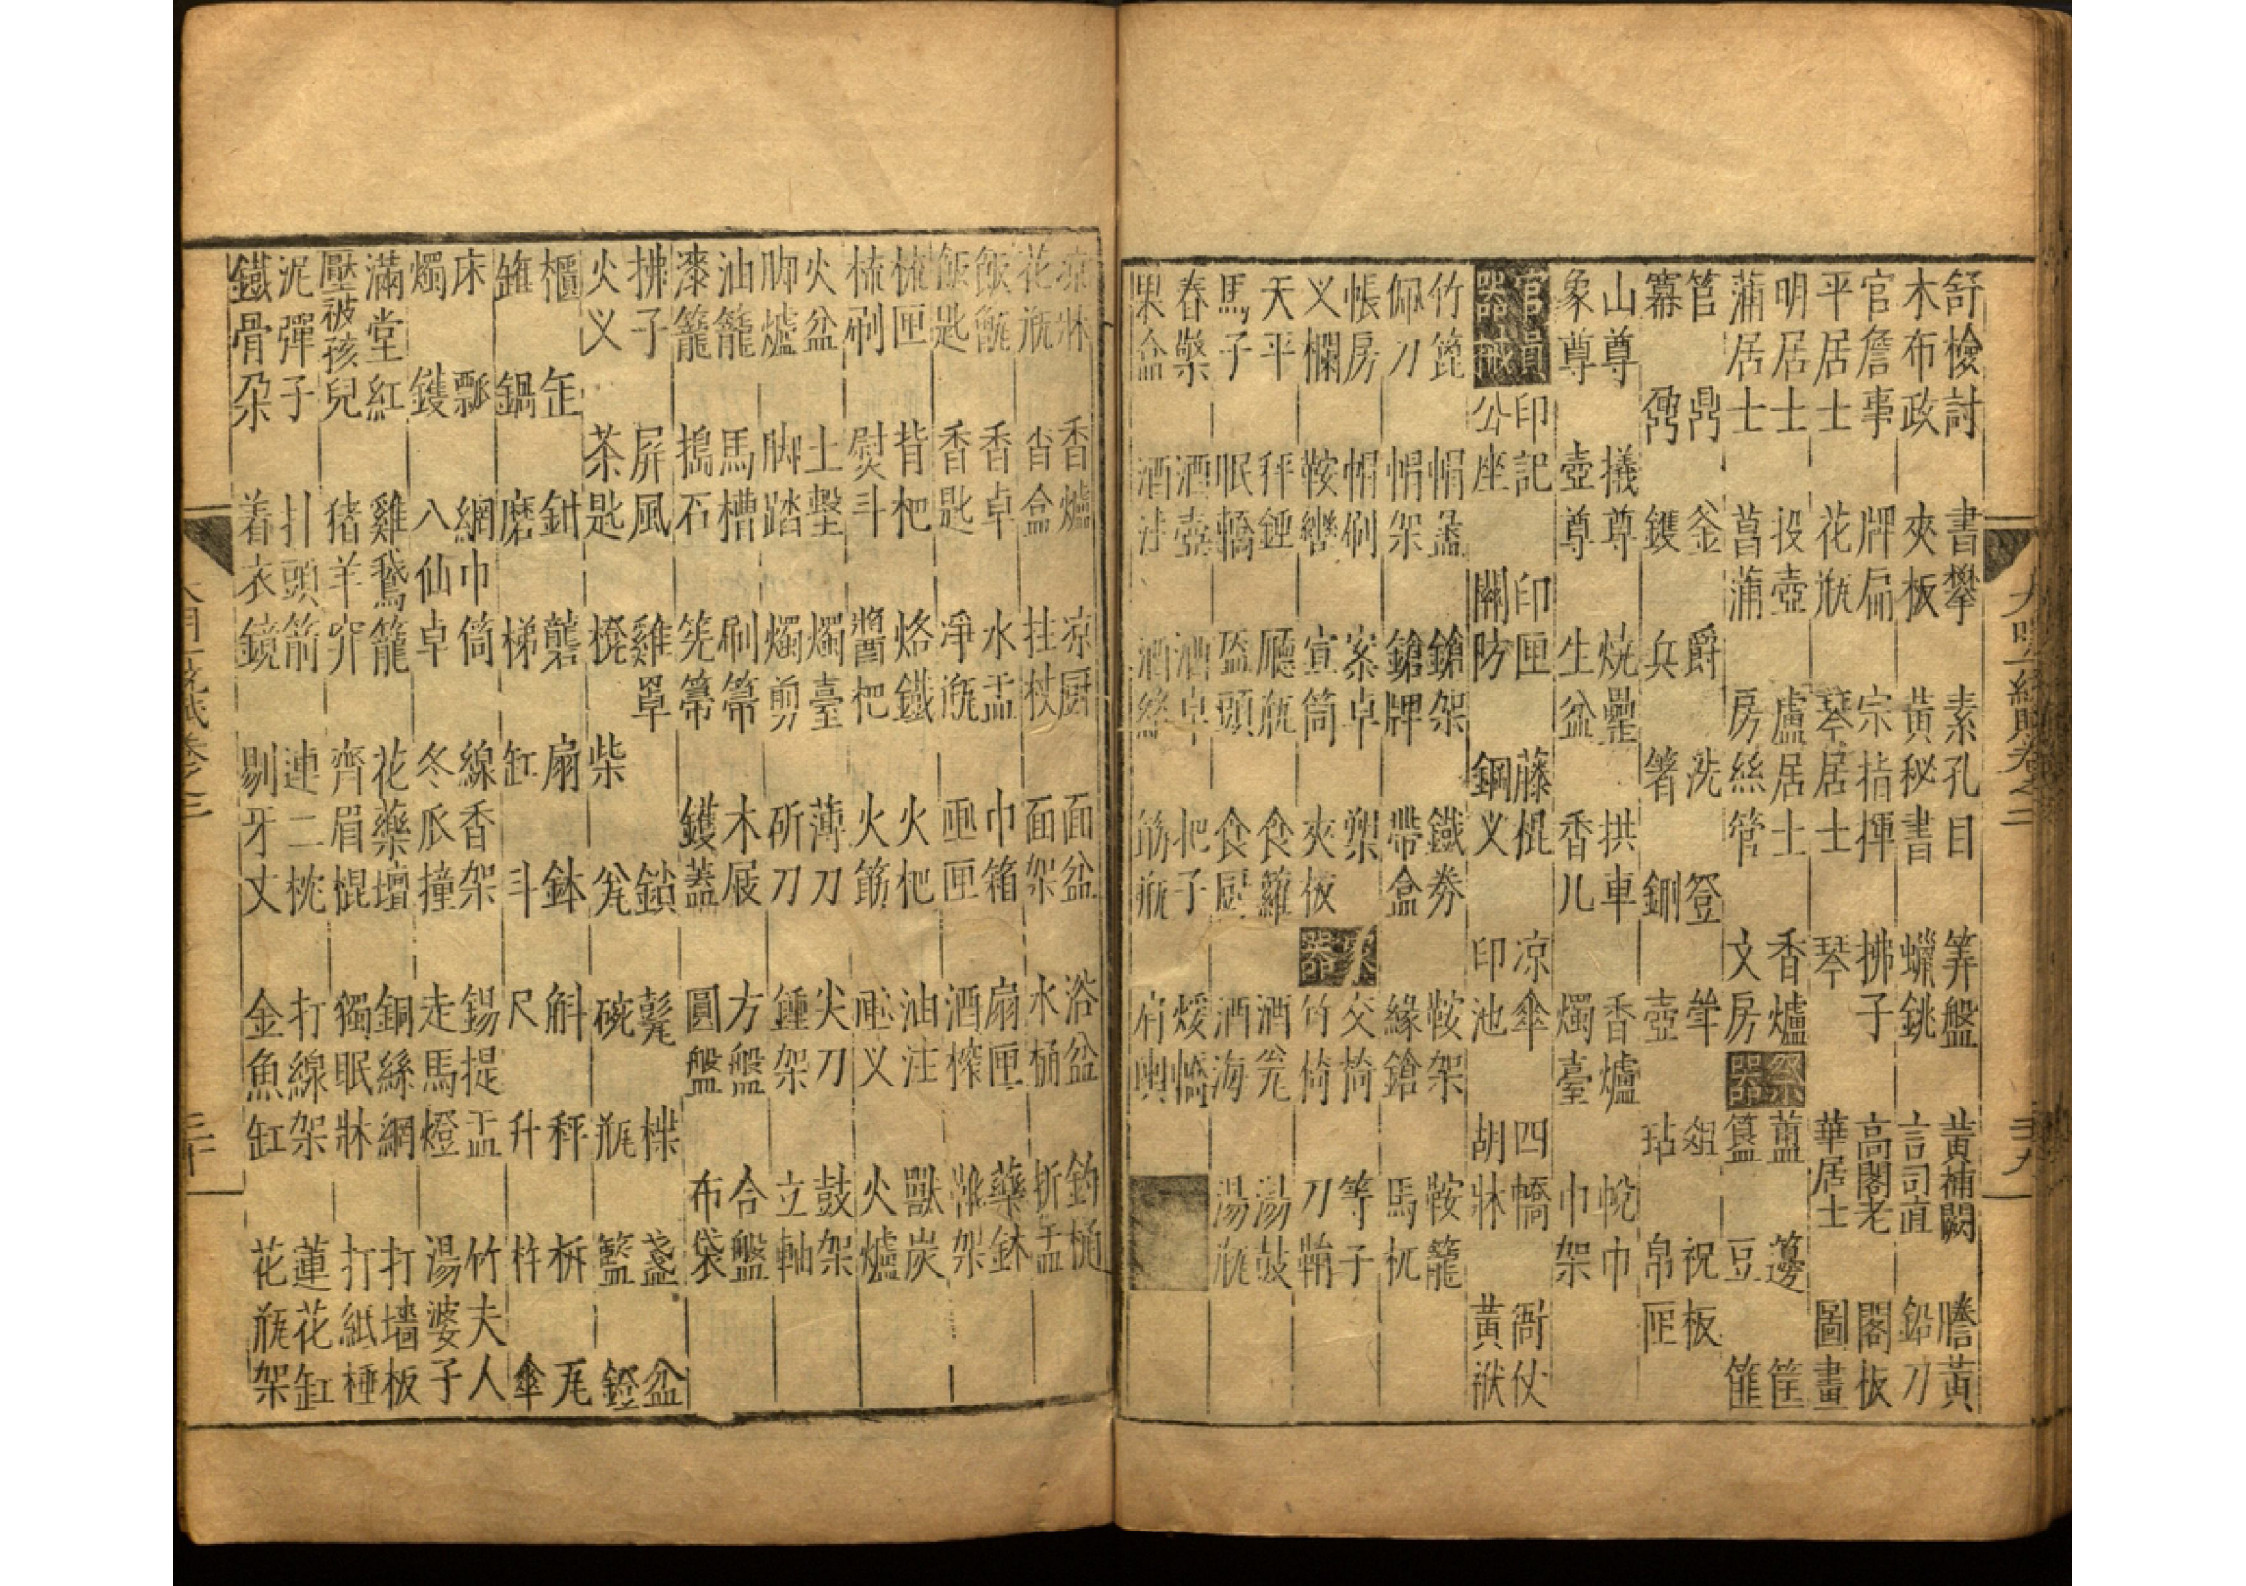 舒檢討 書攀 素孔目 筭盤 黃補闕 謄黃
木布政 夾板 黃秘書 蠟銚 言司直 鉛刀
官詹事 牌扁 宗指揮 拂子 高閣老 閣板
平居士 花瓶 琴居士 琴 華居士 圖畫
明居士 投壺 盧居士 香爐 祭器 簠 籩 筐
蒲居士 菖蒲 房絲管 文房 簋 豆 篚
筥 鼎 釜 爵 洗 登 斝 俎 祝板
冪 鼐 鑊 兵 箸 鉶 壺 坫 帛匣
山尊 犧尊 燒罍 拱車 香爐 帨巾
象尊 壺尊 生盆 香几 燭臺 巾架
官員器械 印記 印匣 藤棍 凉傘 四轎 衙仗
公座 關防 鋼叉 印池 胡牀 黃袱
竹篦 帽盝 鎗架 鐵券 鞍架 鞍籠
佩刀 帽架 鎗牌 帶盒 緣鎗 馬杌
帳房 帽刷 案卓 槊 衆器 交椅 等子
叉欄 鞍轡 宣筒 夾板 竹椅 刀鞘
天平 秤鍾 廳瓶 食籮 酒兊 湯鼓
馬子 眠轎 盔頭 食壓 酒海 湯瓶
春檠 酒壺 酒卓 杷子 煖轎
果盒 酒注 酒絲 筯瓶 肩輿
大明一統賦卷之三 三十九
凉牀 香爐 凉厨 面盆 浴盆 釣桶
花瓶 香盒 拄杖 面架 水桶 折盂
飯甑 香卓 水盂 巾箱 扇匣 藥鉢
飯匙 香匙 淨瓶 匜匣 酒榨
梳匣 背杷 烙鐵 火杷 油注 獸炭
梳刷 熨斗 醬杷 火筯 叉 火爐
火盆 土墼 燭臺 薄刀 尖刀 鼓架
脚爐 脚踏 燭剪 斫刀 鍾架 立軸
油籠 馬槽 刷箒 木屐 方盤 合盤
漆籠 搗石 筅箒 鑊蓋 圓盤 布袋
拂子 屏風 雞罩 鎖 髦 楪 盞 盆
火叉 茶匙 櫈 柴 瓮 碗 瓶 籃 鐙
櫃 缶 鉗 礱 扇 鉢 斛 秤 柝 瓦
錐 鍋 磨 梯 缸 斗 尺 升 杵 傘
床 瓢 網巾筒 線香架 錫提盂 竹夫人
燭 鑊 八仙卓 冬瓜撞 走馬燈 湯婆子
滿堂紅 雞鵝籠 花藥壇 銅絲網 打墻板
壓被孩兒 猪羊穽 齊眉棍 獨眠牀 打紙棰
泥彈子 扒頭箭 連二枕 打線架 蓮花缸
鐵骨朵 着衣鏡 剔牙丈 金魚缸 花瓶架
大明一統賦卷之三 四十